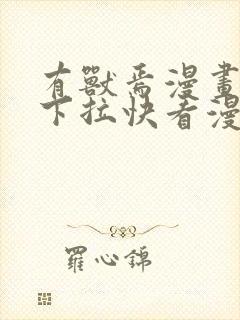 有獸焉漫畫
下拉快看漫
羅心錦